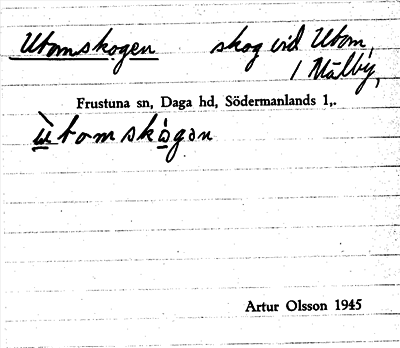 Utomskogen skog vid Utom,
1 Målby,
Frustuna sn, Daga hd, Södermanlands l,.
ùtomskògən
Artur Olsson 1945